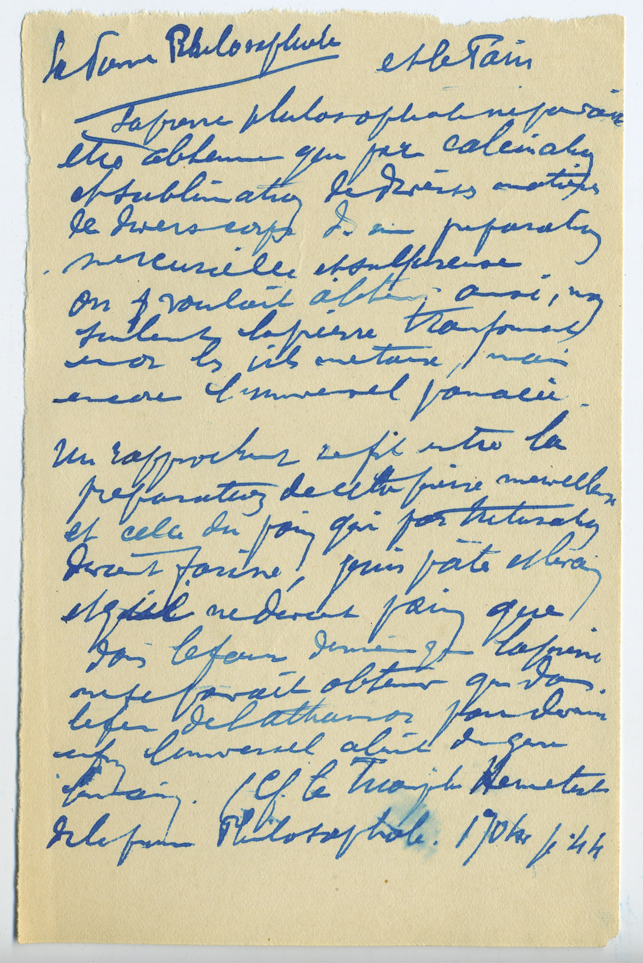 La Pierre Philosophale et le Pain
La pierre philosophale ne pouvait
être obtenue que par calcination
et sublimation de diverses matières
de divers corps d'une préparation
mercurielle et sulfureuse
on y voulait obtenir ainsi, non
seulement la pierre transformant
les vils métaux, mais
encore l'universel panacée.
Un rapprochement se fit entre la
préparation de cette pierre merveilleuse
et celle du pain qui par trituration
devient farine, puis pâte et levain
et qui ne devient pain que
dans le four de même que la pierre
ne se pouvait obtenir que dans
le feu de l'athanor pour devenir
enfin l'universel aliment du genre
humain. (Cf. le Triomphe Hermétique
de la pierre Philosophale.